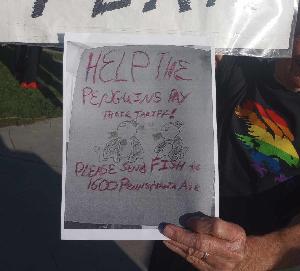 HELP THE
PENGUINS PAY
THEIR TARIFF!
PLEASE SEND FISH to
1600 PENNSYLVANIA AVE